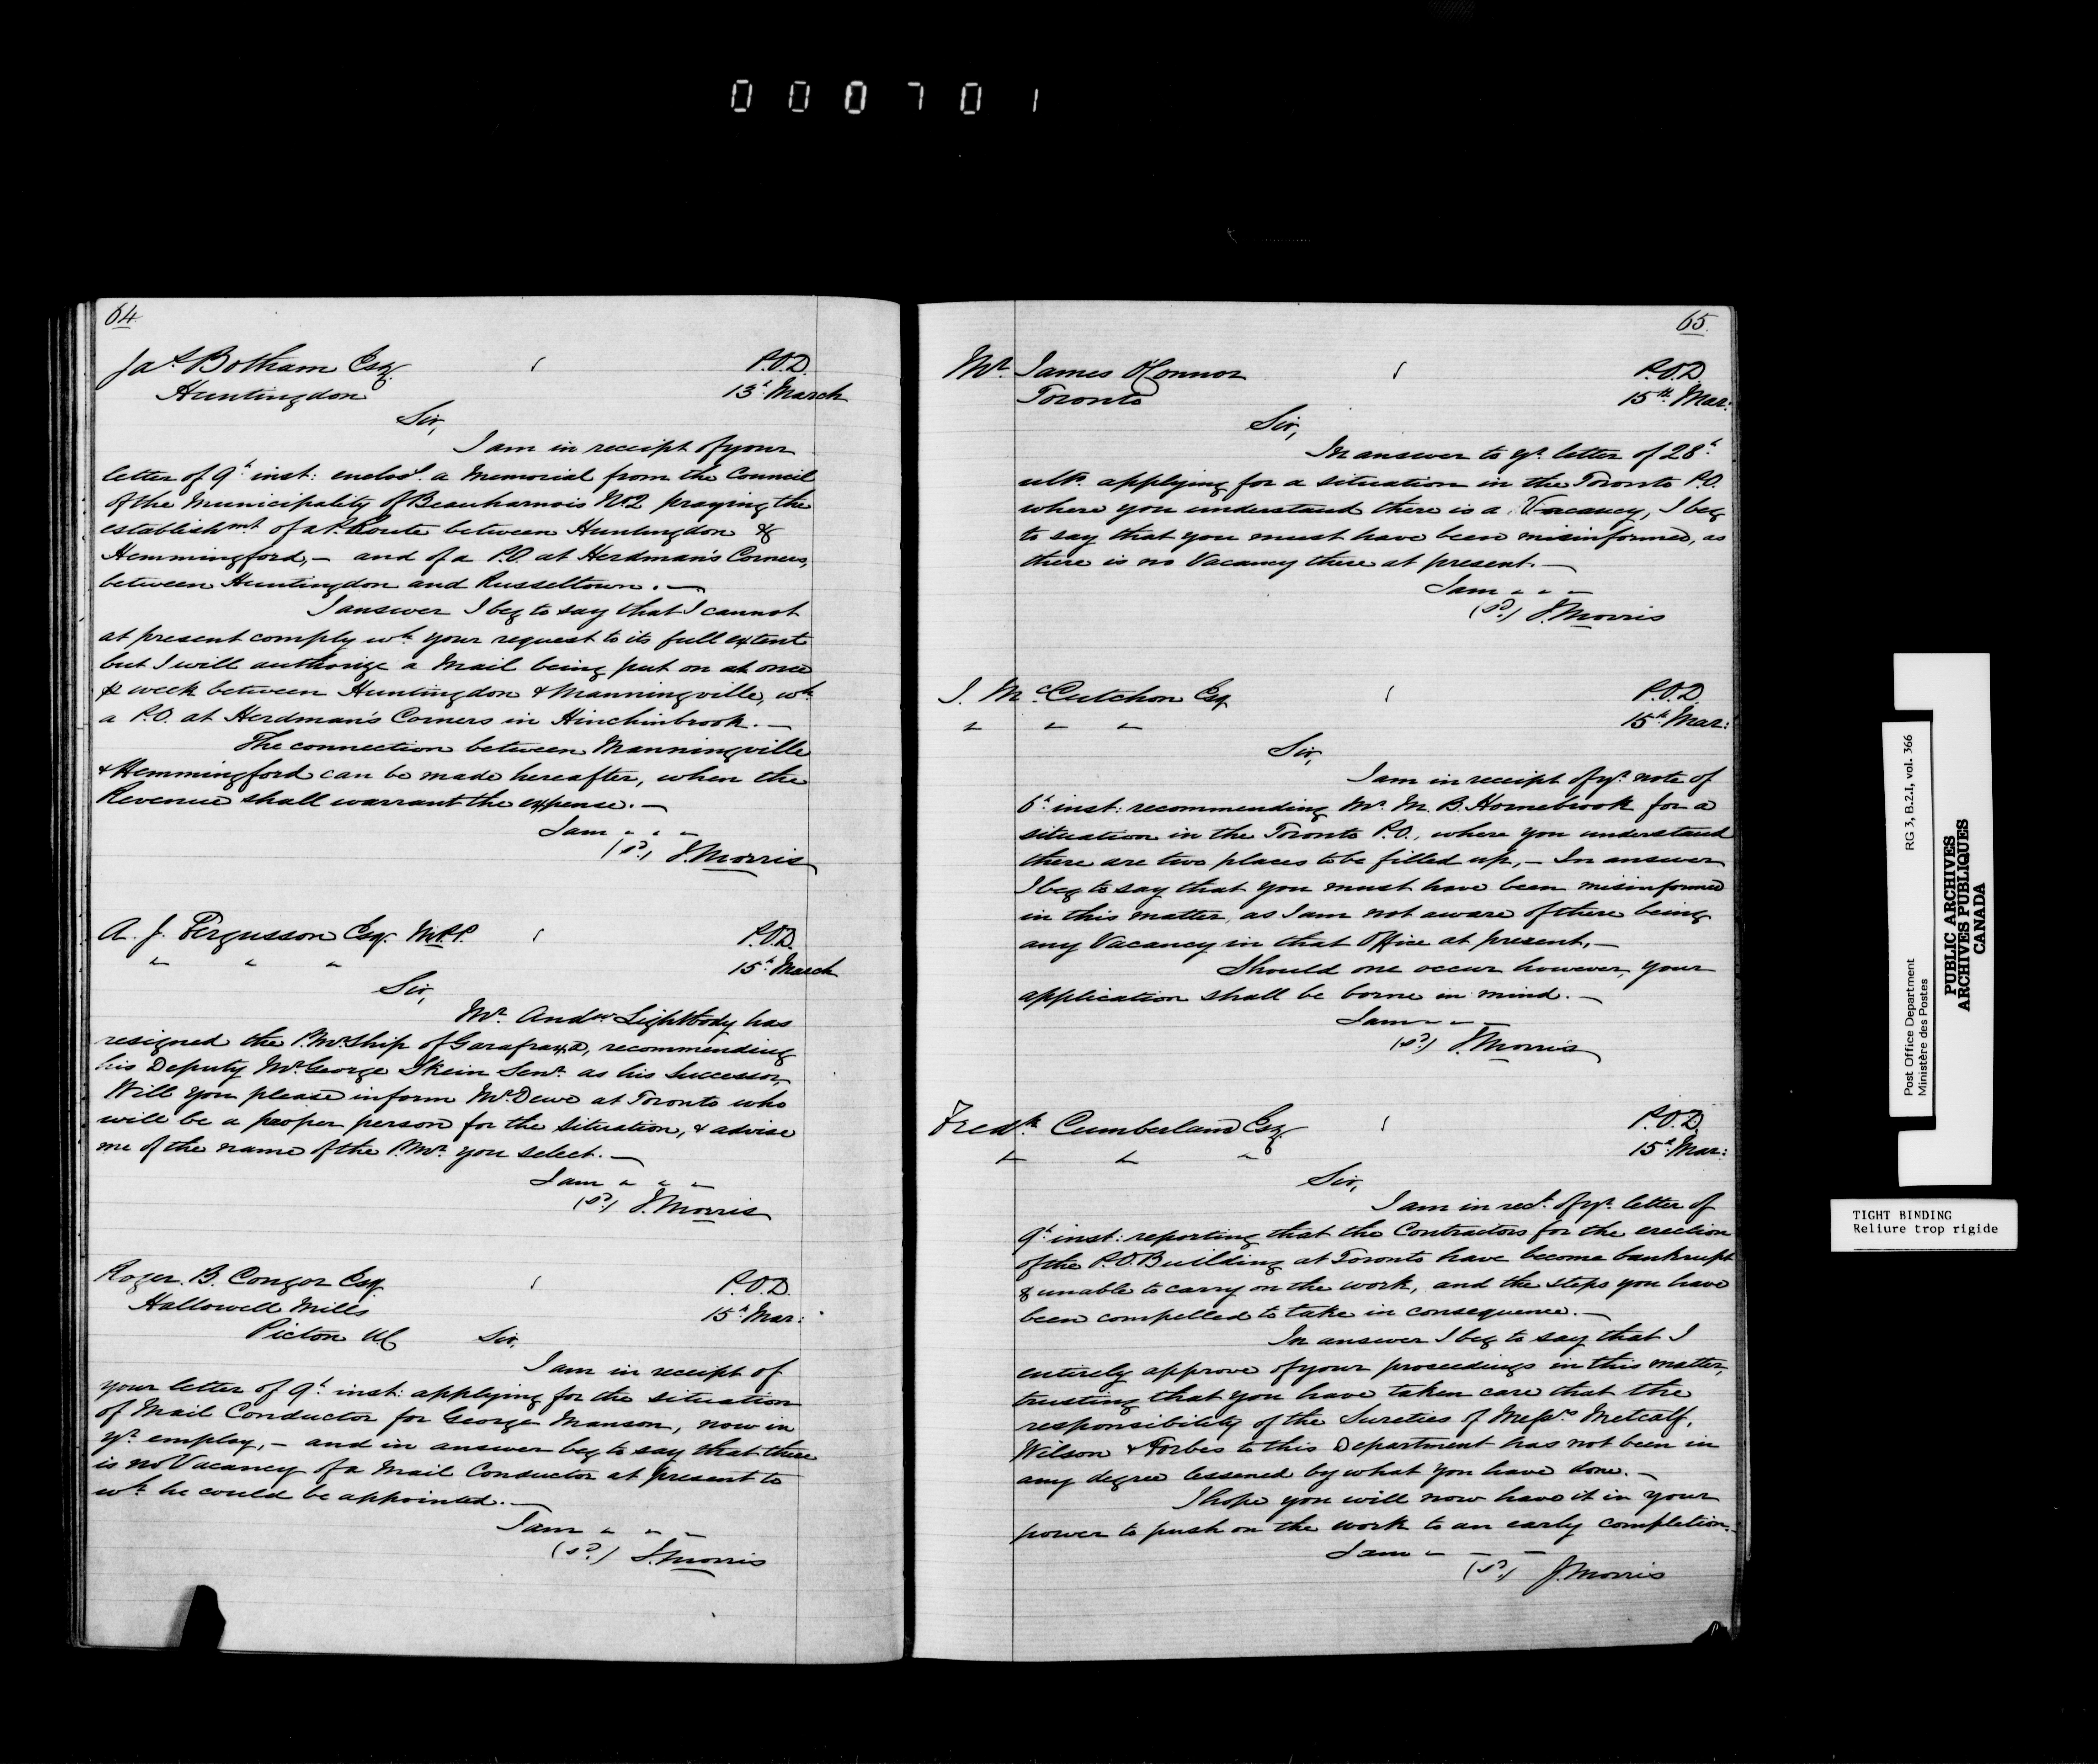 000701
64
Jas Botham Esq.
P.O.D.
Huntingdon
13th March
Sir,
I am in receipt of your
letter of 9th inst: enclosd. a Memorial from the Council
of the Municipality of Beauharnois No 2 praying the
establishmt. of a P. Route between Huntingdon &
Hemmingford, — and of a P.O. at Herdman's Corners,
between Huntingdon and Russeltown. —
I answer I beg to say that I cannot
at present comply wh. your request to its full extent
but I will authorize a Mail being put on at once
week between Huntingdon & Manningville, wh.
a P.O. at Herdman's Corners in Hinchinbrook. —
The connection between Manningville
& Hemmingford can be made hereafter, when the
Revenue shall warrant the expense. —
I am " " "
(sd.) J. Morris
A. J. Fergusson Esq. M.P.P.
P.O.D.
" " "
15th March
Sir,
Mr. Andw Lightbody has
resigned the P.Mr.Ship of Garafraxa, recommending
his Deputy Mr. George Skein Senr. as his Successor,
Will you please inform Mr. Dewe at Toronto who
will be a proper person for the situation, & advise
me of the name of the P.Mr. you select. —
I am " " "
(sd.) J. Morris
Roger. B. Conger Esq
P.O.D.
Hallowell Mills
15th Mar:
Picton UC
Sir,
I am in receipt of
your letter of 9th inst: applying for the situation
of Mail Conductor for George Manson, now in
yr. employ, — and in answer beg to say that there
is no Vacancy of a Mail Conductor at present to
wh. he could be appointed. —
I am " " "
(sd.) J. Morris
65.
Mr. James O'Connor
P.O.D.
Toronto
15th Mar:
Sir,
In answer to yr. letter of 28th
ulto. applying for a situation in the Toronto P.O.
where you understand there is a Vacancy, I beg
to say that you must have been misinformed, as
there is no Vacancy there at present. —
I am " " "
(sd.) J. Morris
J. McCutchon Esq
P.O.D.
" " "
15th Mar:
Sir,
I am in receipt of yr. note of
6th inst: recommending Mr. M. B. Hornebrook for a
situation in the Toronto P.O., where you understand
there are two places to be filled up, — In answer
I beg to say that you must have been misinformed
in this matter, as I am not aware of there being
any Vacancy in that Office at present, —
Should one occur however, your
application shall be borne in mind. —
I am " " "
(sd.) J. Morris
Fredk. Cumberland Esq.
P.O.D.
" " "
15th Mar:
Sir,
I am in rect. of yr. letter of
9th inst: reporting that the Contractors for the erection
of the P.O. Building at Toronto have become bankrupt
& unable to carry on the work, and the steps you have
been compelled to take in consequence. —
In answer I beg to say that I
entirely approve of your proceedings in this matter,
trusting that you have taken care that the
responsibility of the Sureties of Messrs. Metcalf,
Wilson & Forbes to this Department has not been in
any degree lessened by what you have done. —
I hope you will now have it in your
power to push on the work to an early completion. —
I am " " "
(sd.) J. Morris
Post Office Department RG 3, B.2.I, vol. 366
Ministère des Postes
PUBLIC ARCHIVES
ARCHIVES PUBLIQUES
CANADA
TIGHT BINDING
Reliure trop rigide